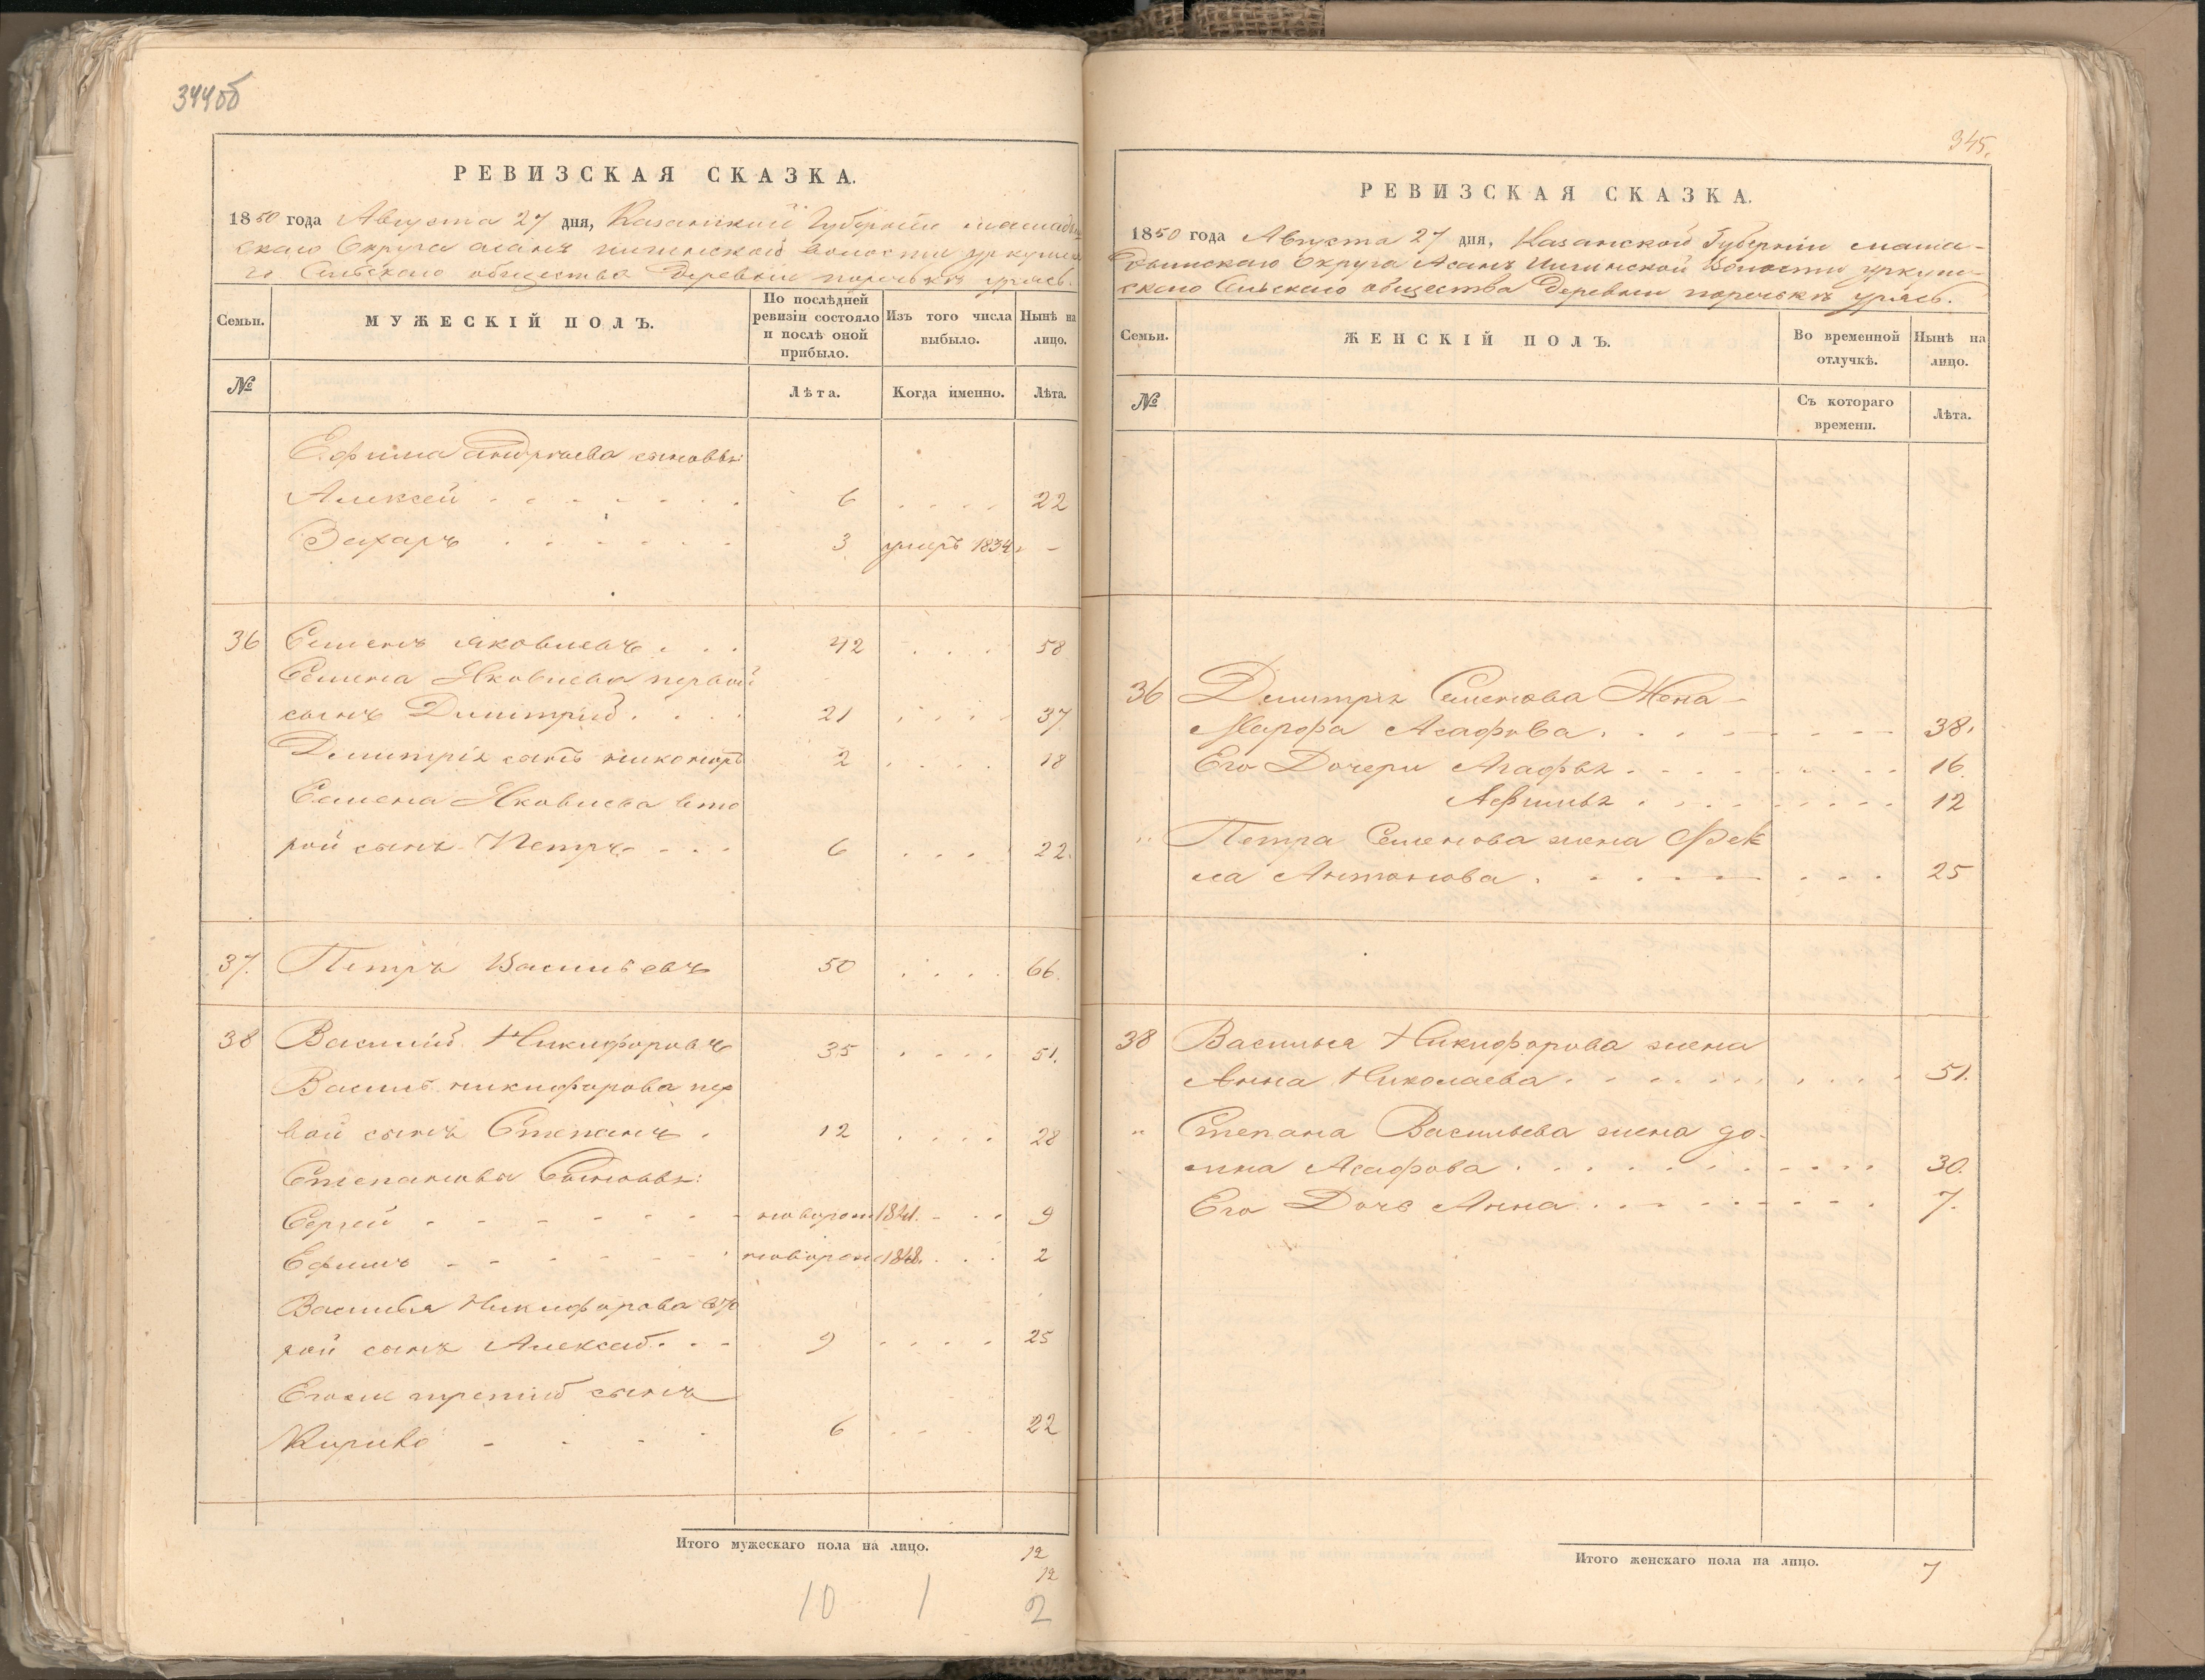 344об
РЕВИЗСКАЯ СКАЗКА.
1850 года Августа 27 дня, Казанской Губернiи мамады
скаго Округа асанъ илгинской волости уркуш
го Сельскаго общества Деревни поречькъ уразъ.
Семьи.
МУЖЕСКIЙ ПОЛЪ.
По послѣдней ревизiи состояло и послѣ оной прибыло.
Изъ того числа выбыло.
Нынѣ на лицо.
№
Лѣта.
Когда именно.
Лѣта.
Ефима Андреева сыновья:
Алексей 6 22
Захаръ 3 умеръ 1834 -
36 Семенъ яковлевъ 42 58
Семена Яковлева первой
сынъ Димитрий 21 37
Димитрiя сынъ никоноръ 2 18
Семена Яковлева вто
рой сынъ Петръ 6 22.
37. Петръ Васильевъ 50 66.
38 Василий Никифоровъ 35 51.
Василь никифорова пер
вой сынъ Степанъ 12 28
Степанова Сыновья:
Сергей новорож 1841. 9
Ефимъ новорож 1848. 2
Василья Никифорова вто
рой сынъ Алексей 9 25
Егоже третий сынъ
Кирило 6 22
Итого мужескаго пола на лицо. 12
12
10 1 2
345.
РЕВИЗСКАЯ СКАЗКА.
1850 года Августа 27 дня, Казанской Губернiи мама-
дышскаго Округа Асанъ Илгинской Волости уркуш-
скаго Сельскаго общества Деревни поречькъ уразъ.
Семьи.
ЖЕНСКIЙ ПОЛЪ.
Во временной отлучкѣ.
Нынѣ на лицо.
№
Съ котораго времени.
Лѣта.
36 Димитрiя Семенова Жена
Марфа Асафова. 38.
Его Дочери Агафья 16.
Афимья 12
" Петра Семенова жена Фек
ла Антонова. 25
38 Василья Никифорова жена
Анна Николаева 51.
" Степана Васильева жена до-
мна Асафова 30.
Его Дочь Анна 7.
Итого женскаго пола на лицо. 7